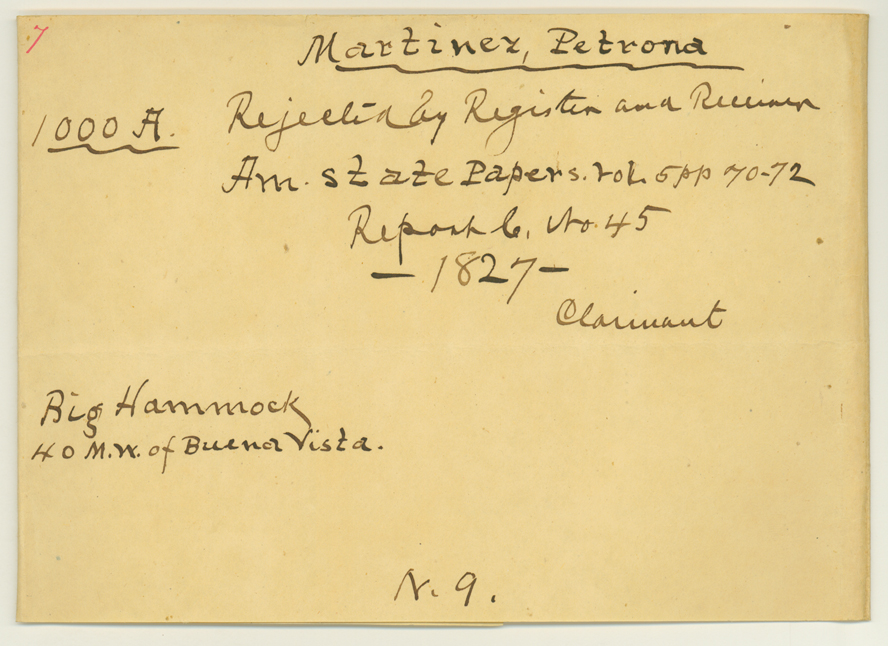 7
Martinez, Petrona
1000 A. Rejected by Register and Receiver
Am. State Papers. Vol. 5 pp 70-72
Report 6, No. 45
— 1827 —
Claimant
Big Hammock
40 M.W. of Buena Vista.
N. 9.